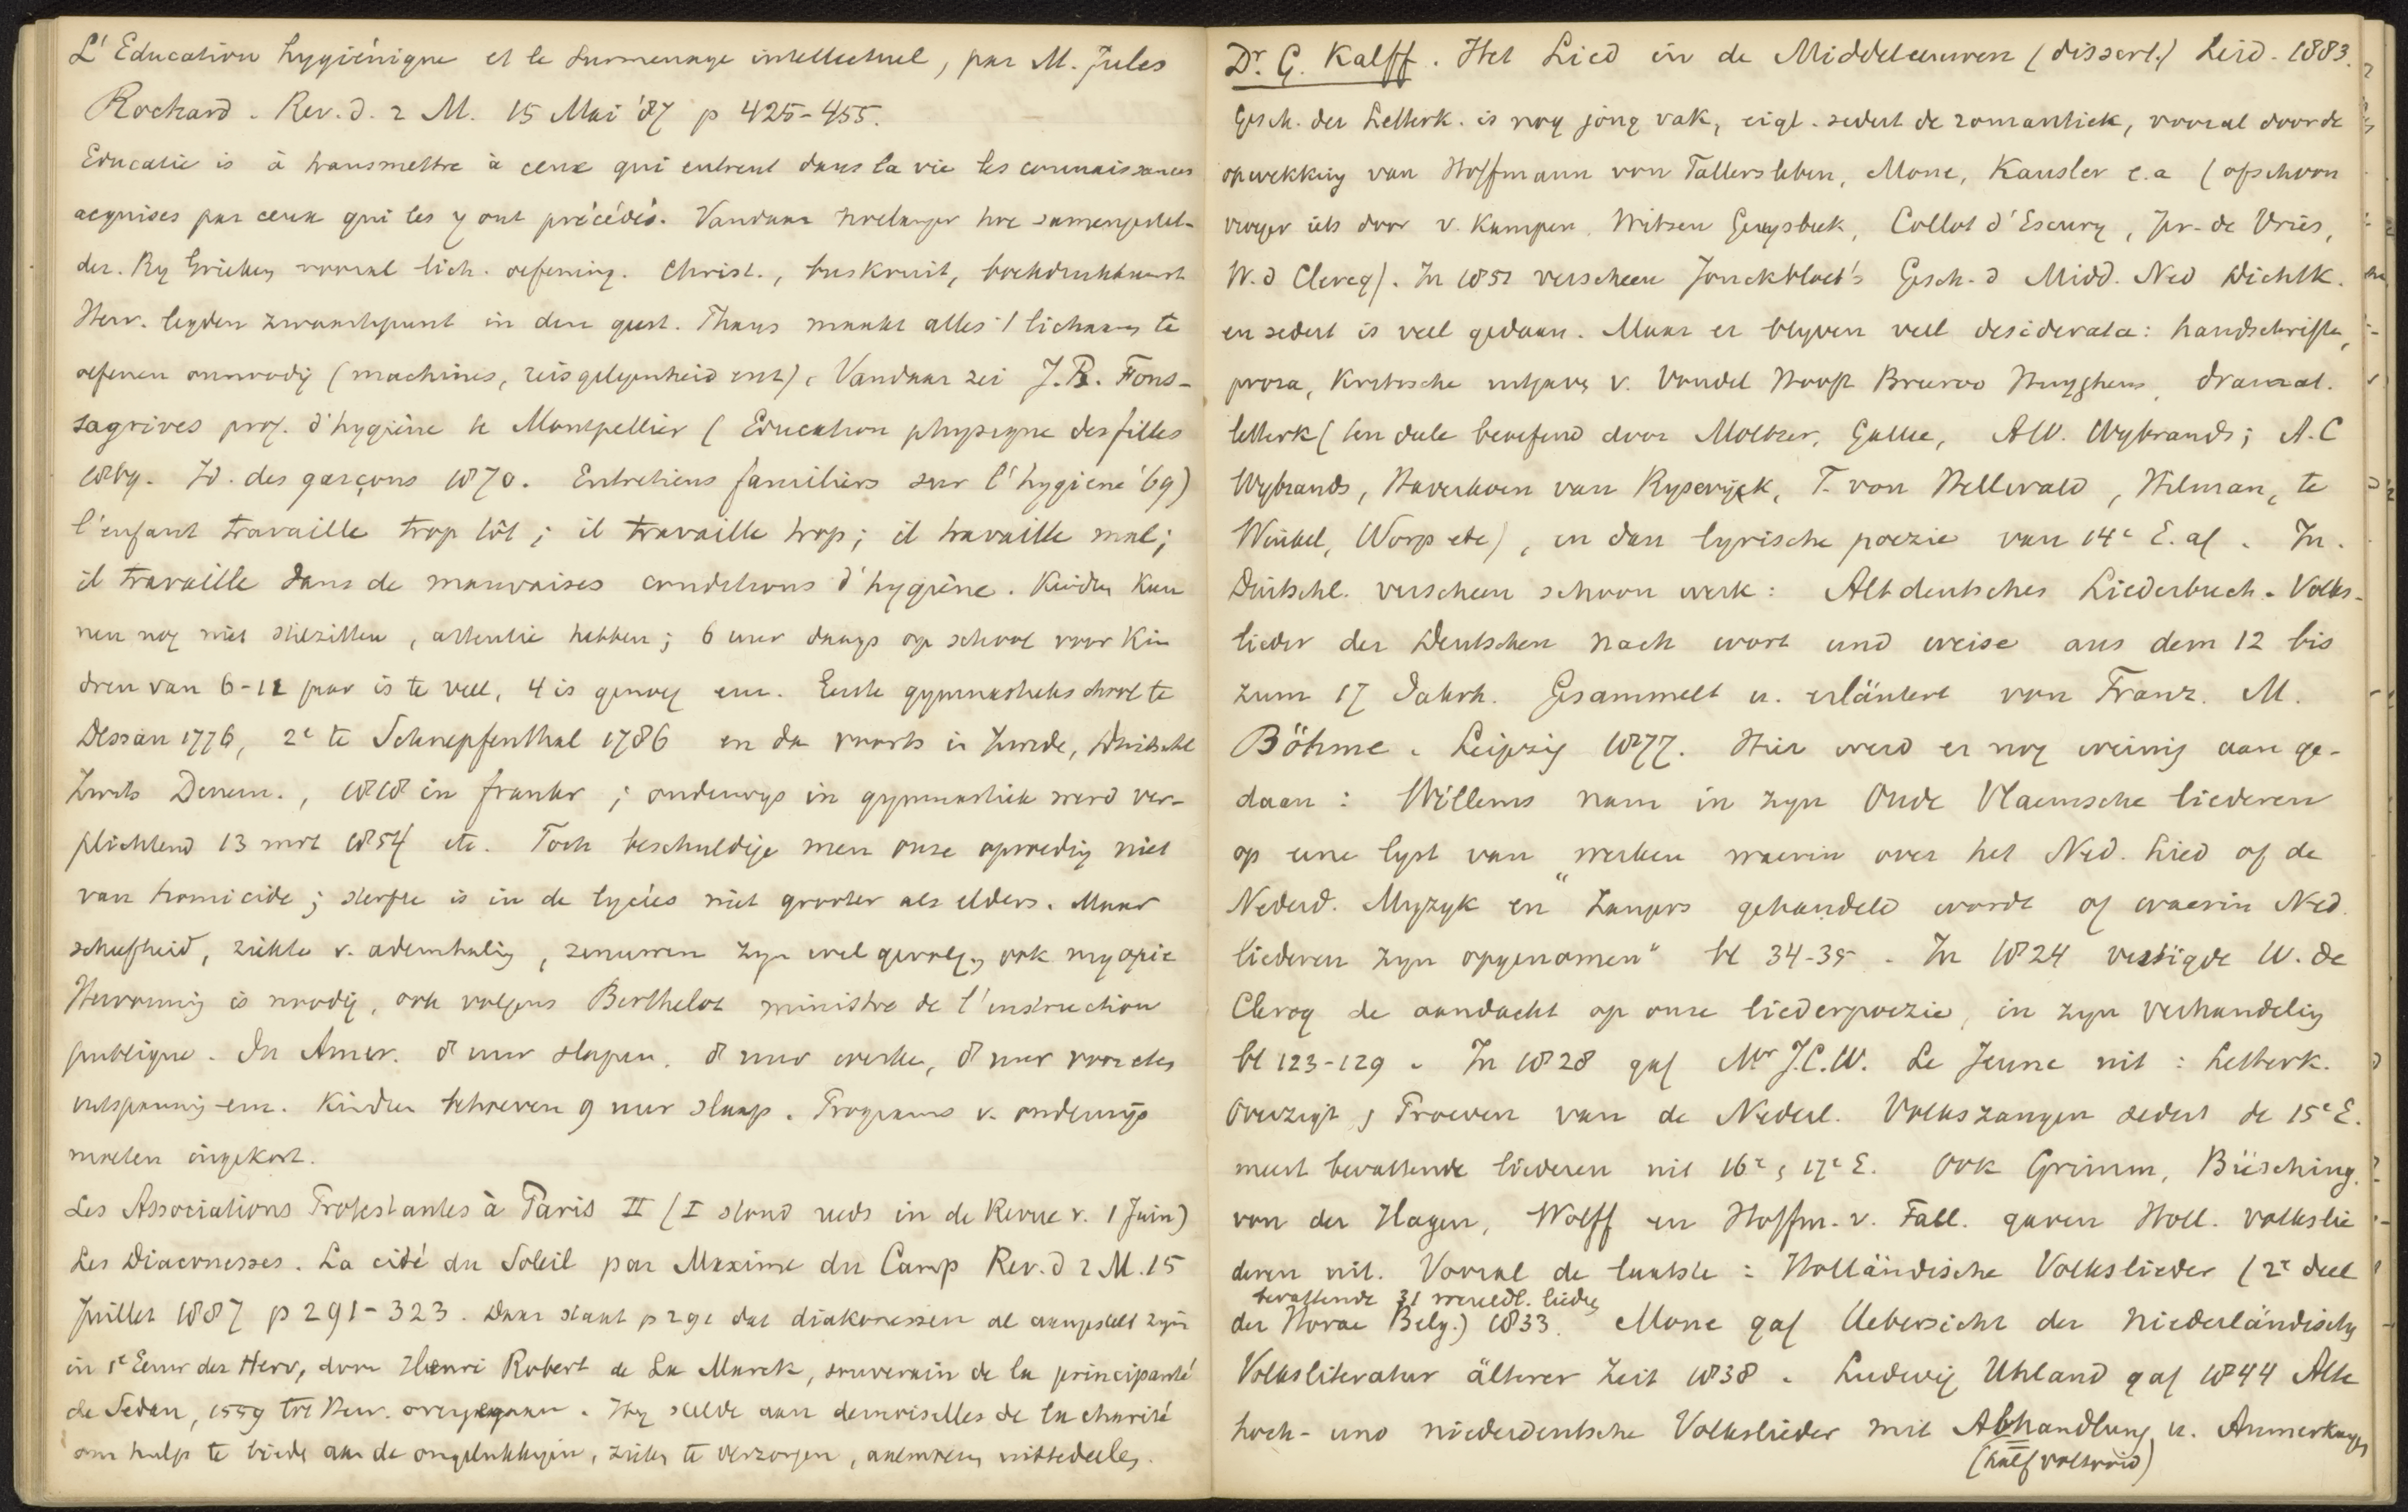 L'Education hygiénique et le surmenage intellectuel, par M. Jules
Rochard. Rev. d. 2 M. 15 Mai '87 p 425-455.
Educatie is à transmettre à ceux qui entrent dans la vie les connaissances
acquises par ceux qui les y ont précédés. Vandaar hoelanger hoe samengestel-
der. By Grieken vooral lich. oefening. Christ., buskruit, boekdrukkunst
Herv. legden zwaartepunt in den geest. Thans maakt alles 1 lichaam te
oefenen onnoodig (machines, reisgelegenheid enz). Vandaar zei J.B. Fons-
sagrives prof. d'hygiène te Montpellier (Education physique des filles
1869. Id. des garçons 1870. Entretiens familiers sur l'hygiene '69)
l'enfant travaille trop tôt; il travaille trop; il travaille mal;
il travaille dans de mauvaises conditions d'hygiène. Kindren kun
nen nog niet stilzitten, attentie hebben; 6 uur daags op school voor kin
dren van 6-12 jaar is te veel, 4 is genoeg enz. Eerste gymnastiekschool te
Dessau 1776, 2e te Schnepfenthal 1786 en da voorts in Zwede, Duitschl
Zwits Denem., 1818 in frankr; onderwys in gymnastiek werd ver-
plichtend 13 mrt 1854 etc. Toch beschuldige men onze opvoeding niet
van homicide; sterfte is in de lycées niet grooter als elders. Maar
scheefheid, ziekte v. ademhaling, zenuwen zyn wel gevolgen ook myopie
Hervorming is noodig, ook volgens Berthelot ministre de l'instruction
publique. In Amer. 8 uur slapen, 8 uur werken, 8 uur voor eten
ontspanning enz. Kindren behoeven 9 uur slaap. Programs v. onderwijs
moeten ingekort.
Les Associations Protestantes à Paris II (I stond reeds in de Revue v. 1 Juin)
Les Diaconesses. La cité du Soleil par Maxime du Camp Rev. d 2 M. 15
Juillet 1887 p 291-323. Daar staat p 291 dat diakonessen al aangesteld zyn
in 1e Eeuw der Herv, door Henri Robert de La Marck, souverain de la principauté
de Sedan, 1559 tot Herv. overgegaan. Hy stelde aan demoiselles de la charité
om hulp te biede aan de ongelukkigen, zieken te verzorgen, aalmoezen uittedeelen.
Dr. G. Kalff. Het Lied in de Middeleeuwen (dissert.) Leid. 1883.
Gesch. der Letterk. is nog jong vak, eigl. sedert de romantiek, vooral door de
opwekking van Hoffmann von Fallersleben, Mone, Kausler e.a (ofschoon
vroeger iets door v. Kampen, Witsen Geysbeek, Collot d'Escury, Jer. de Vries,
W. d Clercq). In 1851 verscheen Jonckbloet's Gesch. d Midd. Ned Dichtk.
en sedert is veel gedaan. Maar er blyven veel desiderata: handschriften,
proza, Kritische uitgaven v. Vondel Hooft Breeroo Huyghens, dramat.
letterk (ten deele beoefend door Moltzer, Gallee, A.W. Wybrands; A.C
Wybrands, Haverkorn van Rysewijk, F. von Hellwald, Hilman, te
Winkel, Worp etc), en dan lyrische poezie van 14e E. af. In
Duitschl. verscheen schoon werk: Altdeutsches Liederbuch. Volks-
lieder der Deutschen nach wort und weise aus dem 12 bis
zum 17 Jahrh. Gesammelt u. erläutert von Franz. M.
Böhme. Leipzig 1877. Hier werd er nog weinig aan ge-
daan: Willems nam in zyn Oude Vlaemsche liederen
op eene lyst van "werken waerin over het Ned. Lied of de
Nederd. Muzyk en Zangers gehandeld wordt of waerin Ned.
liederen zyn opgenomen" bl 34-35. In 1824 vestigde W. de
Clercq de aandacht op onze liederpoezie, in zyn Verhandeling
bl 123-129. In 1828 gaf Mr J.C.W. Le Jeune uit: Letterk.
Overzigt en Proeven van de Nederl. Volkszangen sedert de 15e E.
meest bevattende liederen uit 16e en 17e E. Ook Grimm, Büsching,
von der Hagen, Wolff en Hoffm. v. Fall. gaven Holl. volkslie
deren uit. Vooral de laatste: Holländische Volkslieder (2e deel
bevattende 31 wereldl. liedren
der Horae Belg.) 1833. Mone gaf Uebersicht der niederländischen
Volksliteratur älterer Zeit 1838. Ludwig Uhland gaf 1844 Alte
hoch- und niederdeutsche Volkslieder mit Abhandlung u. Anmerkungen
(half voltooid)